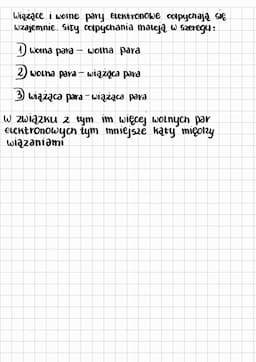 Wiążące i wolne pary elektronowe odpychają się
wzajemnie. Siły odpychania maleją w szeregu:
1) wolna para – wolna para
2) wolna para – wiążąca para
3) wiążąca para – wiążąca para
W związku z tym im więcej wolnych par
elektronowych tym mniejsze kąty między
wiązaniami